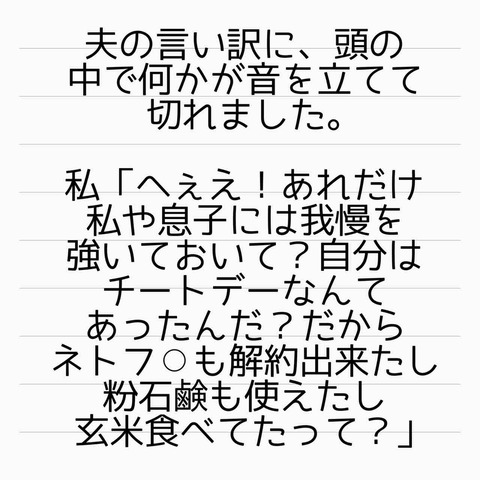 夫の言い訳に、頭の
中で何かが音を立てて
切れました。
私「へぇえ！あれだけ
私や息子には我慢を
強いておいて？自分は
チートデーなんて
あったんだ？だから
ネトフ○も解約出来たし
粉石鹸も使えたし
玄米食べてたって？」